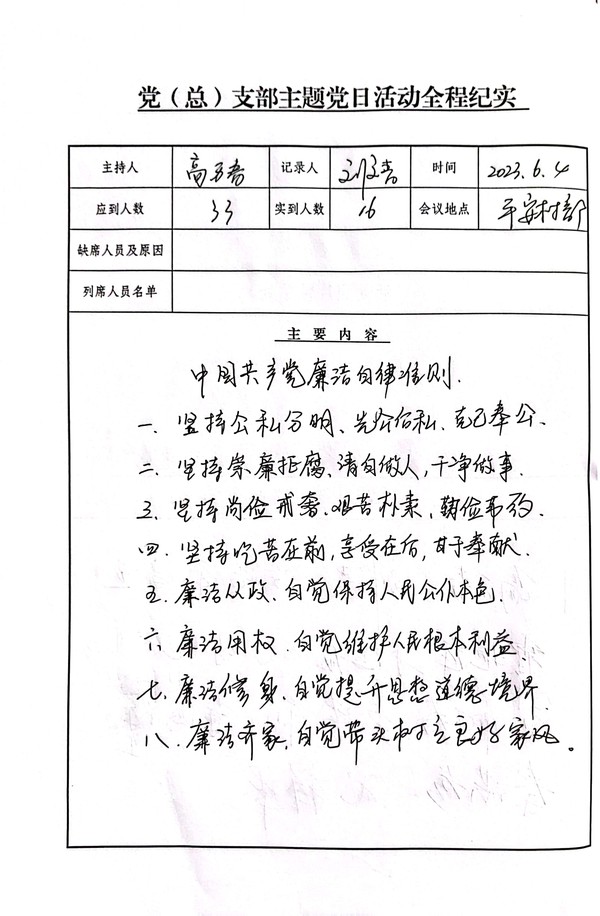 党（总）支部主题党日活动全程纪实
主持人 高万春 记录人 时间 2023.6.4
应到人数 33 实到人数 16 会议地点 平安村村部
缺席人员及原因
列席人员名单
主要内容
中国共产党廉洁自律准则.
一、坚持公私分明、先公后私、克己奉公.
二、坚持崇廉拒腐、清白做人,干净做事.
三、坚持尚俭戒奢、艰苦朴素、勤俭节约.
四、坚持吃苦在前,享受在后,甘于奉献.
五、廉洁从政、自觉保持人民公仆本色.
六、廉洁用权、自觉维护人民根本利益.
七、廉洁修身、自觉提升思想道德境界.
八、廉洁齐家,自觉带头树立良好家风。